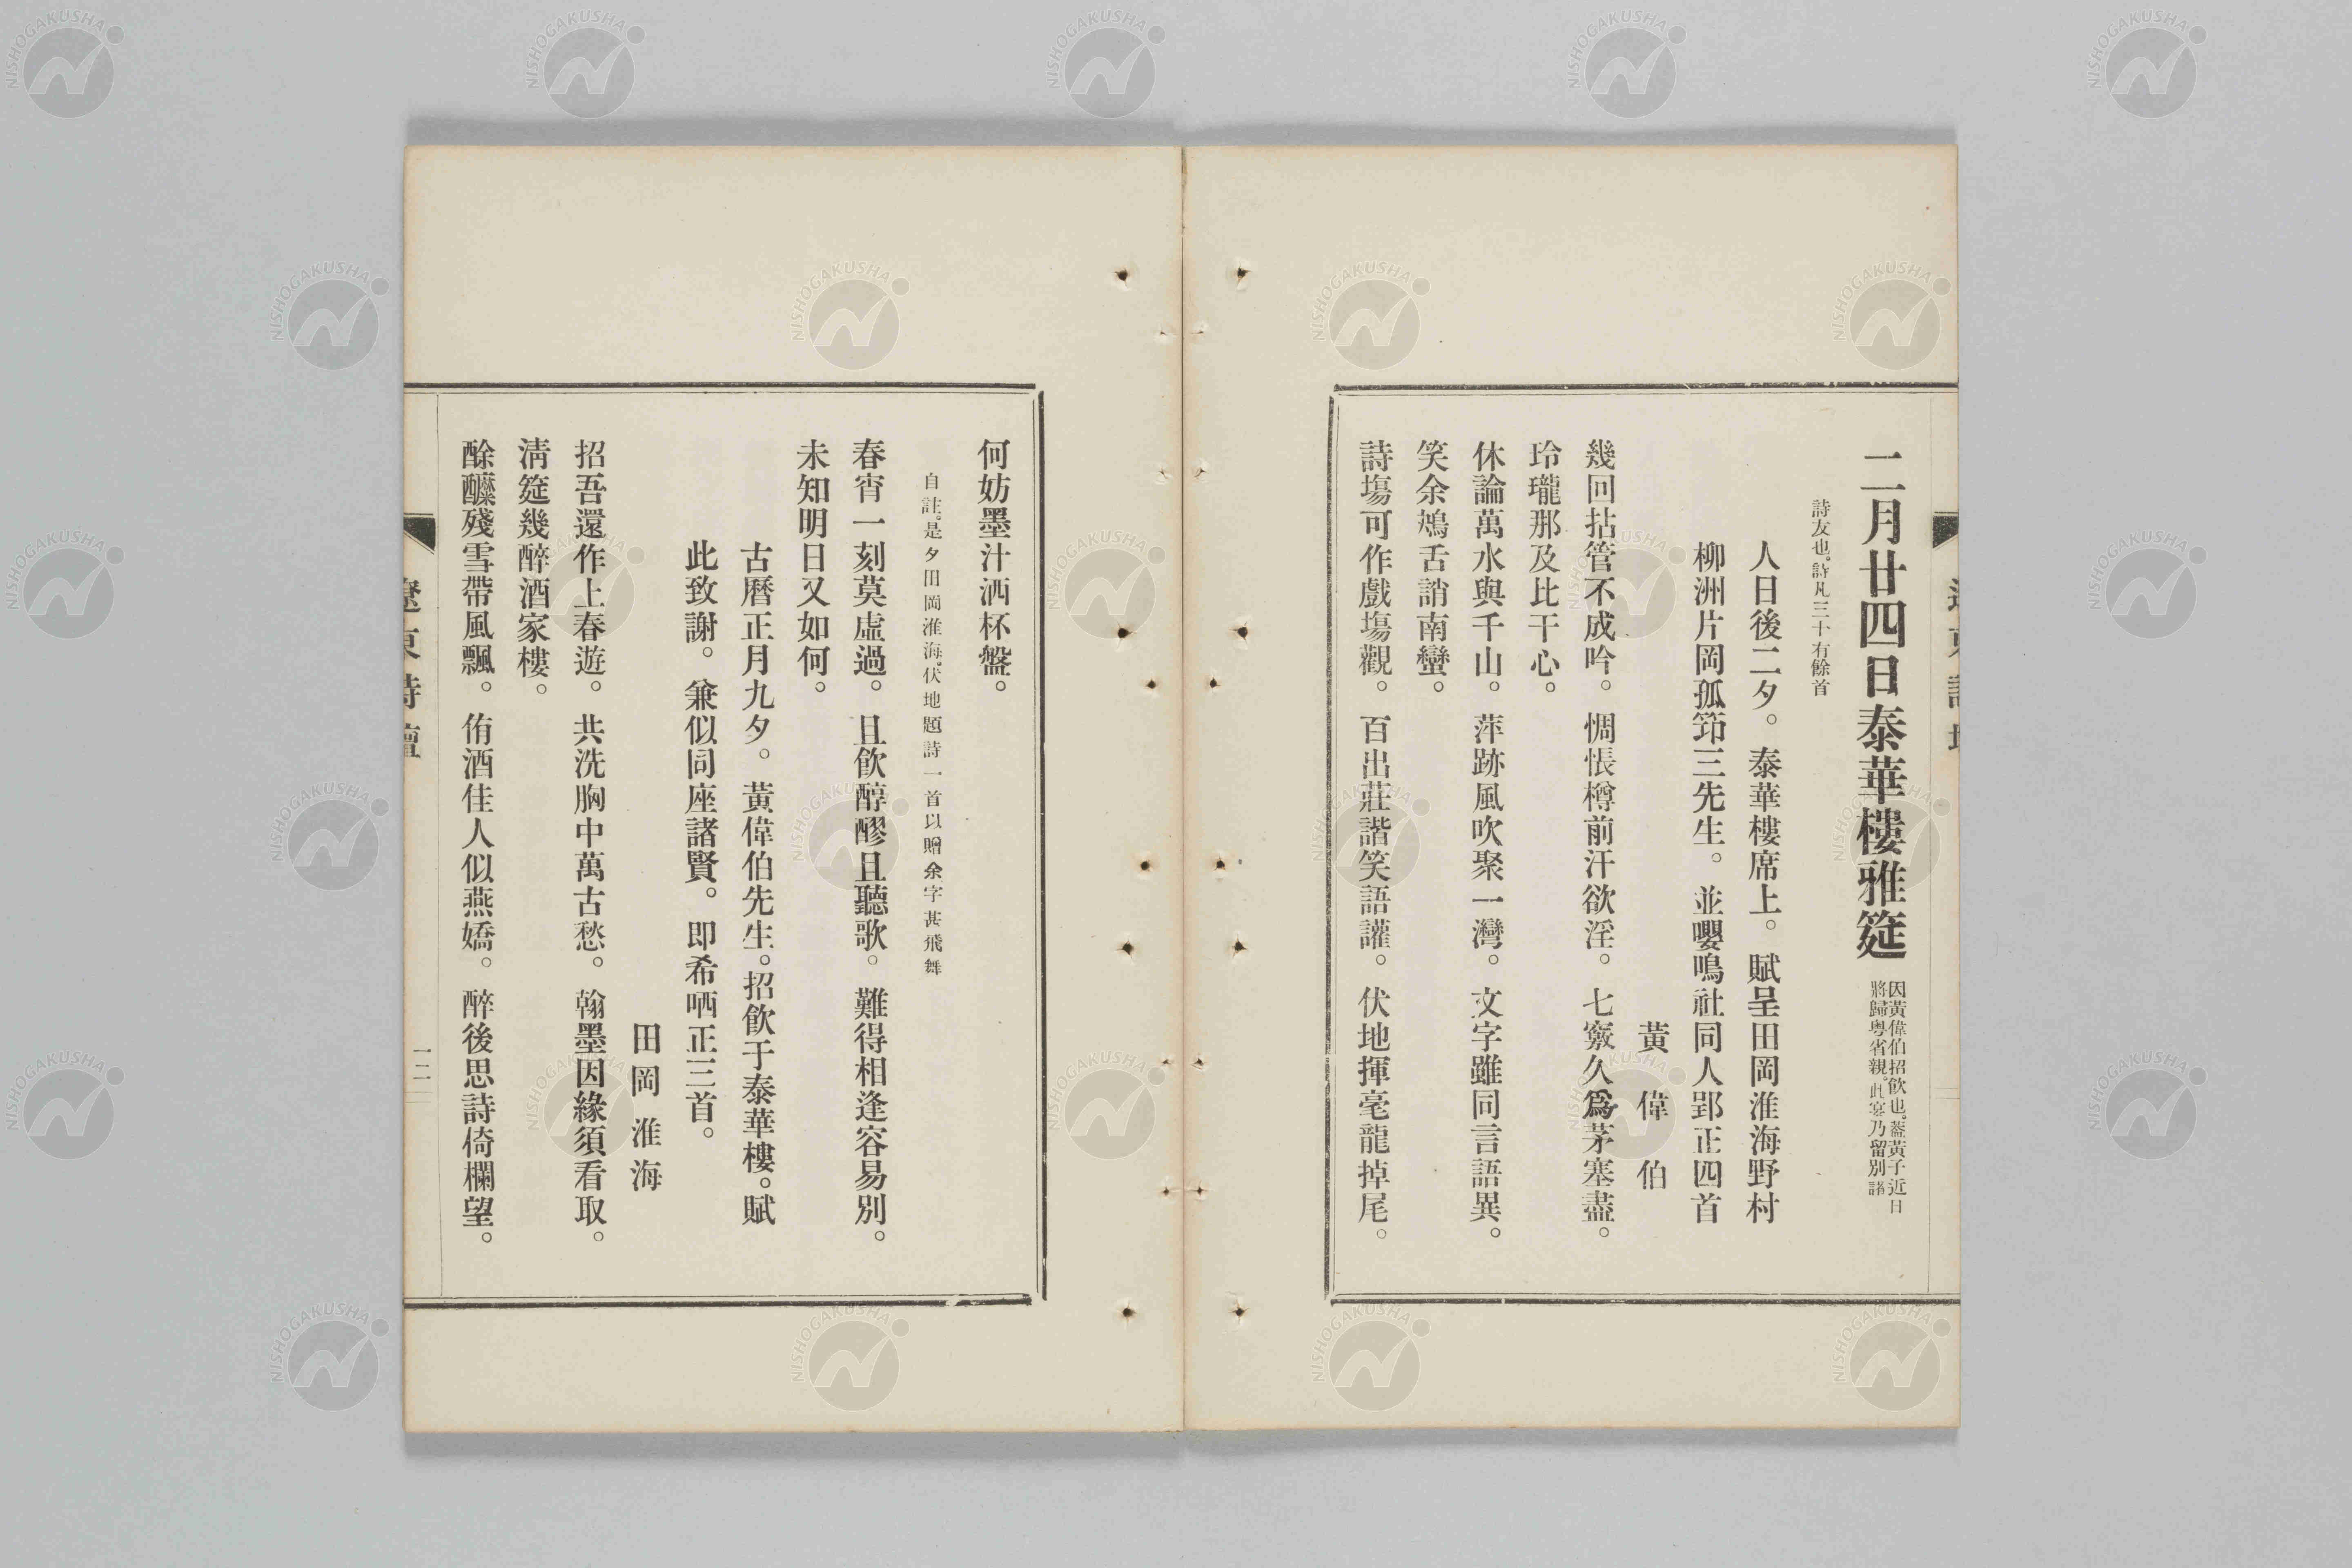 二月廿四日泰華樓雅筵 因黃偉伯招飲也。蓋黃子近日
將歸粤省親。此宴乃留別諸
詩友也。詩凡三十有餘首
人日後二夕。泰華樓席上。賦呈田岡淮海野村
柳洲片岡孤筇三先生。並嚶鳴社同人郢正四首
黃偉伯
幾回拈管不成吟。惆悵樽前汗欲淫。七竅久爲茅塞盡。
玲瓏那及比干心。
休論萬水與千山。萍跡風吹聚一灣。文字雖同言語異。
笑余鴂舌誚南蠻。
詩塲可作戲塲觀。百出莊諧笑語讙。伏地揮毫龍掉尾。
何妨墨汁洒杯盤。
自註。是夕田岡淮海。伏地題詩一首以贈余字甚飛舞
春宵一刻莫虛過。且飮醇醪且聽歌。難得相逢容易別。
未知明日又如何。
古曆正月九夕。黃偉伯先生。招飮于泰華樓。賦
此致謝。兼似同座諸賢。即希哂正三首。
田岡淮海
招吾還作上春遊。共洗胸中萬古愁。翰墨因緣須看取。
淸筵幾醉酒家樓。
酴醾殘雪帶風飄。侑酒佳人似燕嬌。醉後思詩倚欄望。
遼東詩壇
一二
NISHOGAKUSHA